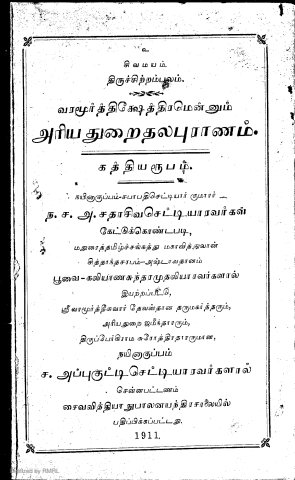 ௨
சிவமயம்.
திருச்சிற்றம்பலம்.
வரமூர்த்திக்ஷேத்திரமென்னும்
அரியதுறைதலபுராணம்.
கத்தியரூபம்.
கயினாகுப்பம்-சபாபதிசெட்டியார் குமாரர்
ந. ச. அ. சதாசிவசெட்டியாரவர்கள்
கேட்டுக்கொண்டபடி,
மதுரைத்தமிழ்ச்சங்கத்து மகாவித்துவான்
சித்தாந்தசரபம்-அஷ்டாவதானம்
பூவை-கலியாணசுந்தரமுதலியாரவர்களால்
இயற்றப்பட்டு,
ஸ்ரீ வரமூர்த்தீசுவரர் தேவஸ்தான தருமகர்த்தரும்,
அரியதுறை ஜமீந்தாரரும்,
திருப்பேர்கிராம சுரோத்திரதாரருமான,
நயினாகுப்பம்
ச. அப்புகுட்டிசெட்டியாரவர்களால்
சென்னபட்டணம்
சைவவித்தியாநுபாலனயந்திரசாலையில்
பதிப்பிக்கப்பட்டது.
1911.
Digitized by RMRL